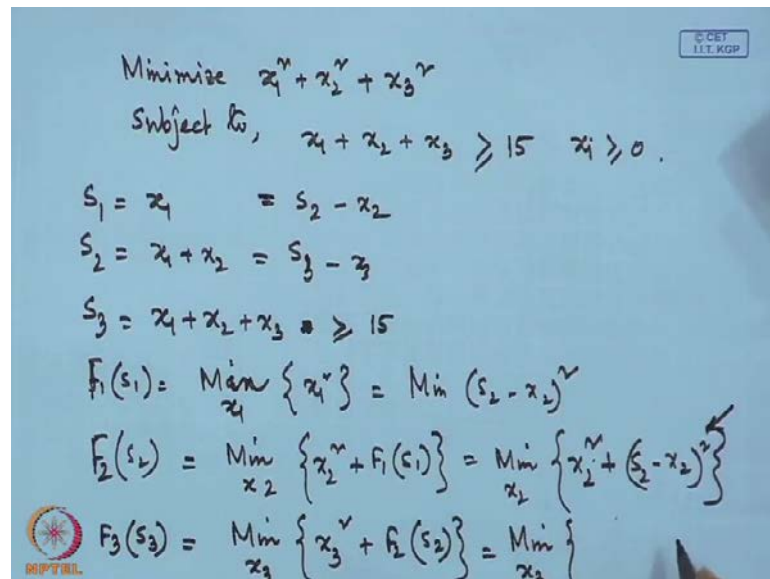 © CET
I.I.T. KGP
Minimize x₁² + x₂² + x₃²
Subject to, x₁ + x₂ + x₃ ≥ 15 xᵢ ≥ 0.
S₁ = x₁ = S₂ - x₂
S₂ = x₁ + x₂ = S₃ - x₃
S₃ = x₁ + x₂ + x₃ ≥ 15
F₁(S₁) = Min x₁ { x₁² } = Min (S₂ - x₂)²
F₂(S₂) = Min x₂ { x₂² + F₁(S₁) } = Min x₂ { x₂² + (S₂ - x₂)² }
F₃(S₃) = Min x₃ { x₃² + F₂(S₂) } = Min x₃ {
NPTEL